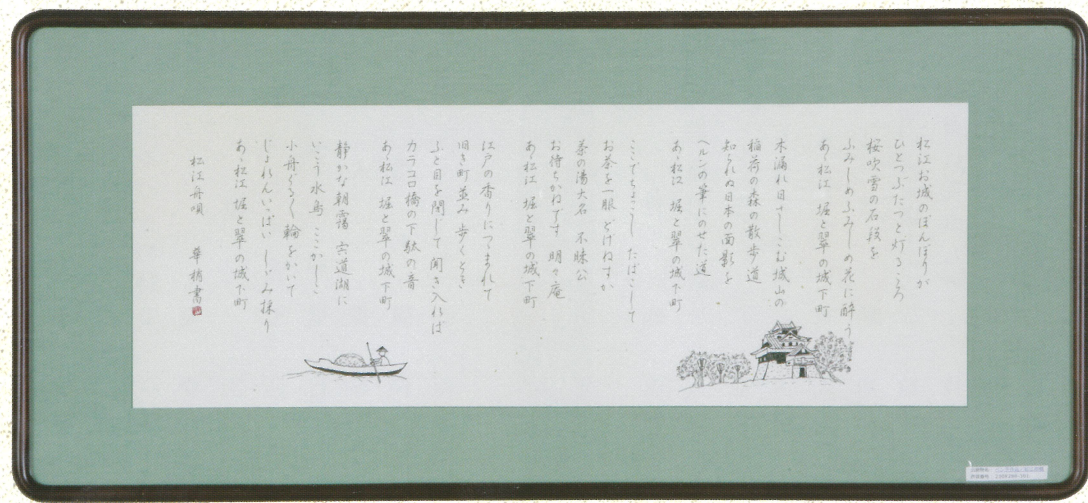 松江お城のぼんぼりが
ひとつふたつと灯るころ
桜吹雪の石段を
ふみしめふみしめ花に酔う
あゝ松江 堀と翠の城下町
木漏れ日さしこむ城山の
稲荷の森の散歩道
知られぬ日本の面影を
ヘルンの筆にのせた道
あゝ松江 堀と翠の城下町
ここでちょこし たばこして
お茶を一服 どげねすか
茶の湯大名 不昧公
お待ちかねです 明々庵
あゝ松江 堀と翠の城下町
江戸の香りにつつまれて
旧き町並み 歩くとき
ふと目を閉じて 聞き入れば
カラコロ橋の下駄の音
あゝ松江 堀と翠の城下町
静かな朝靄 宍道湖に
いこう水鳥 ここかしこ
小舟ぐるぐる 輪をかいて
じょれんいっぱい しじみ採り
あゝ松江 堀と翠の城下町
松江舟唄 華梢書